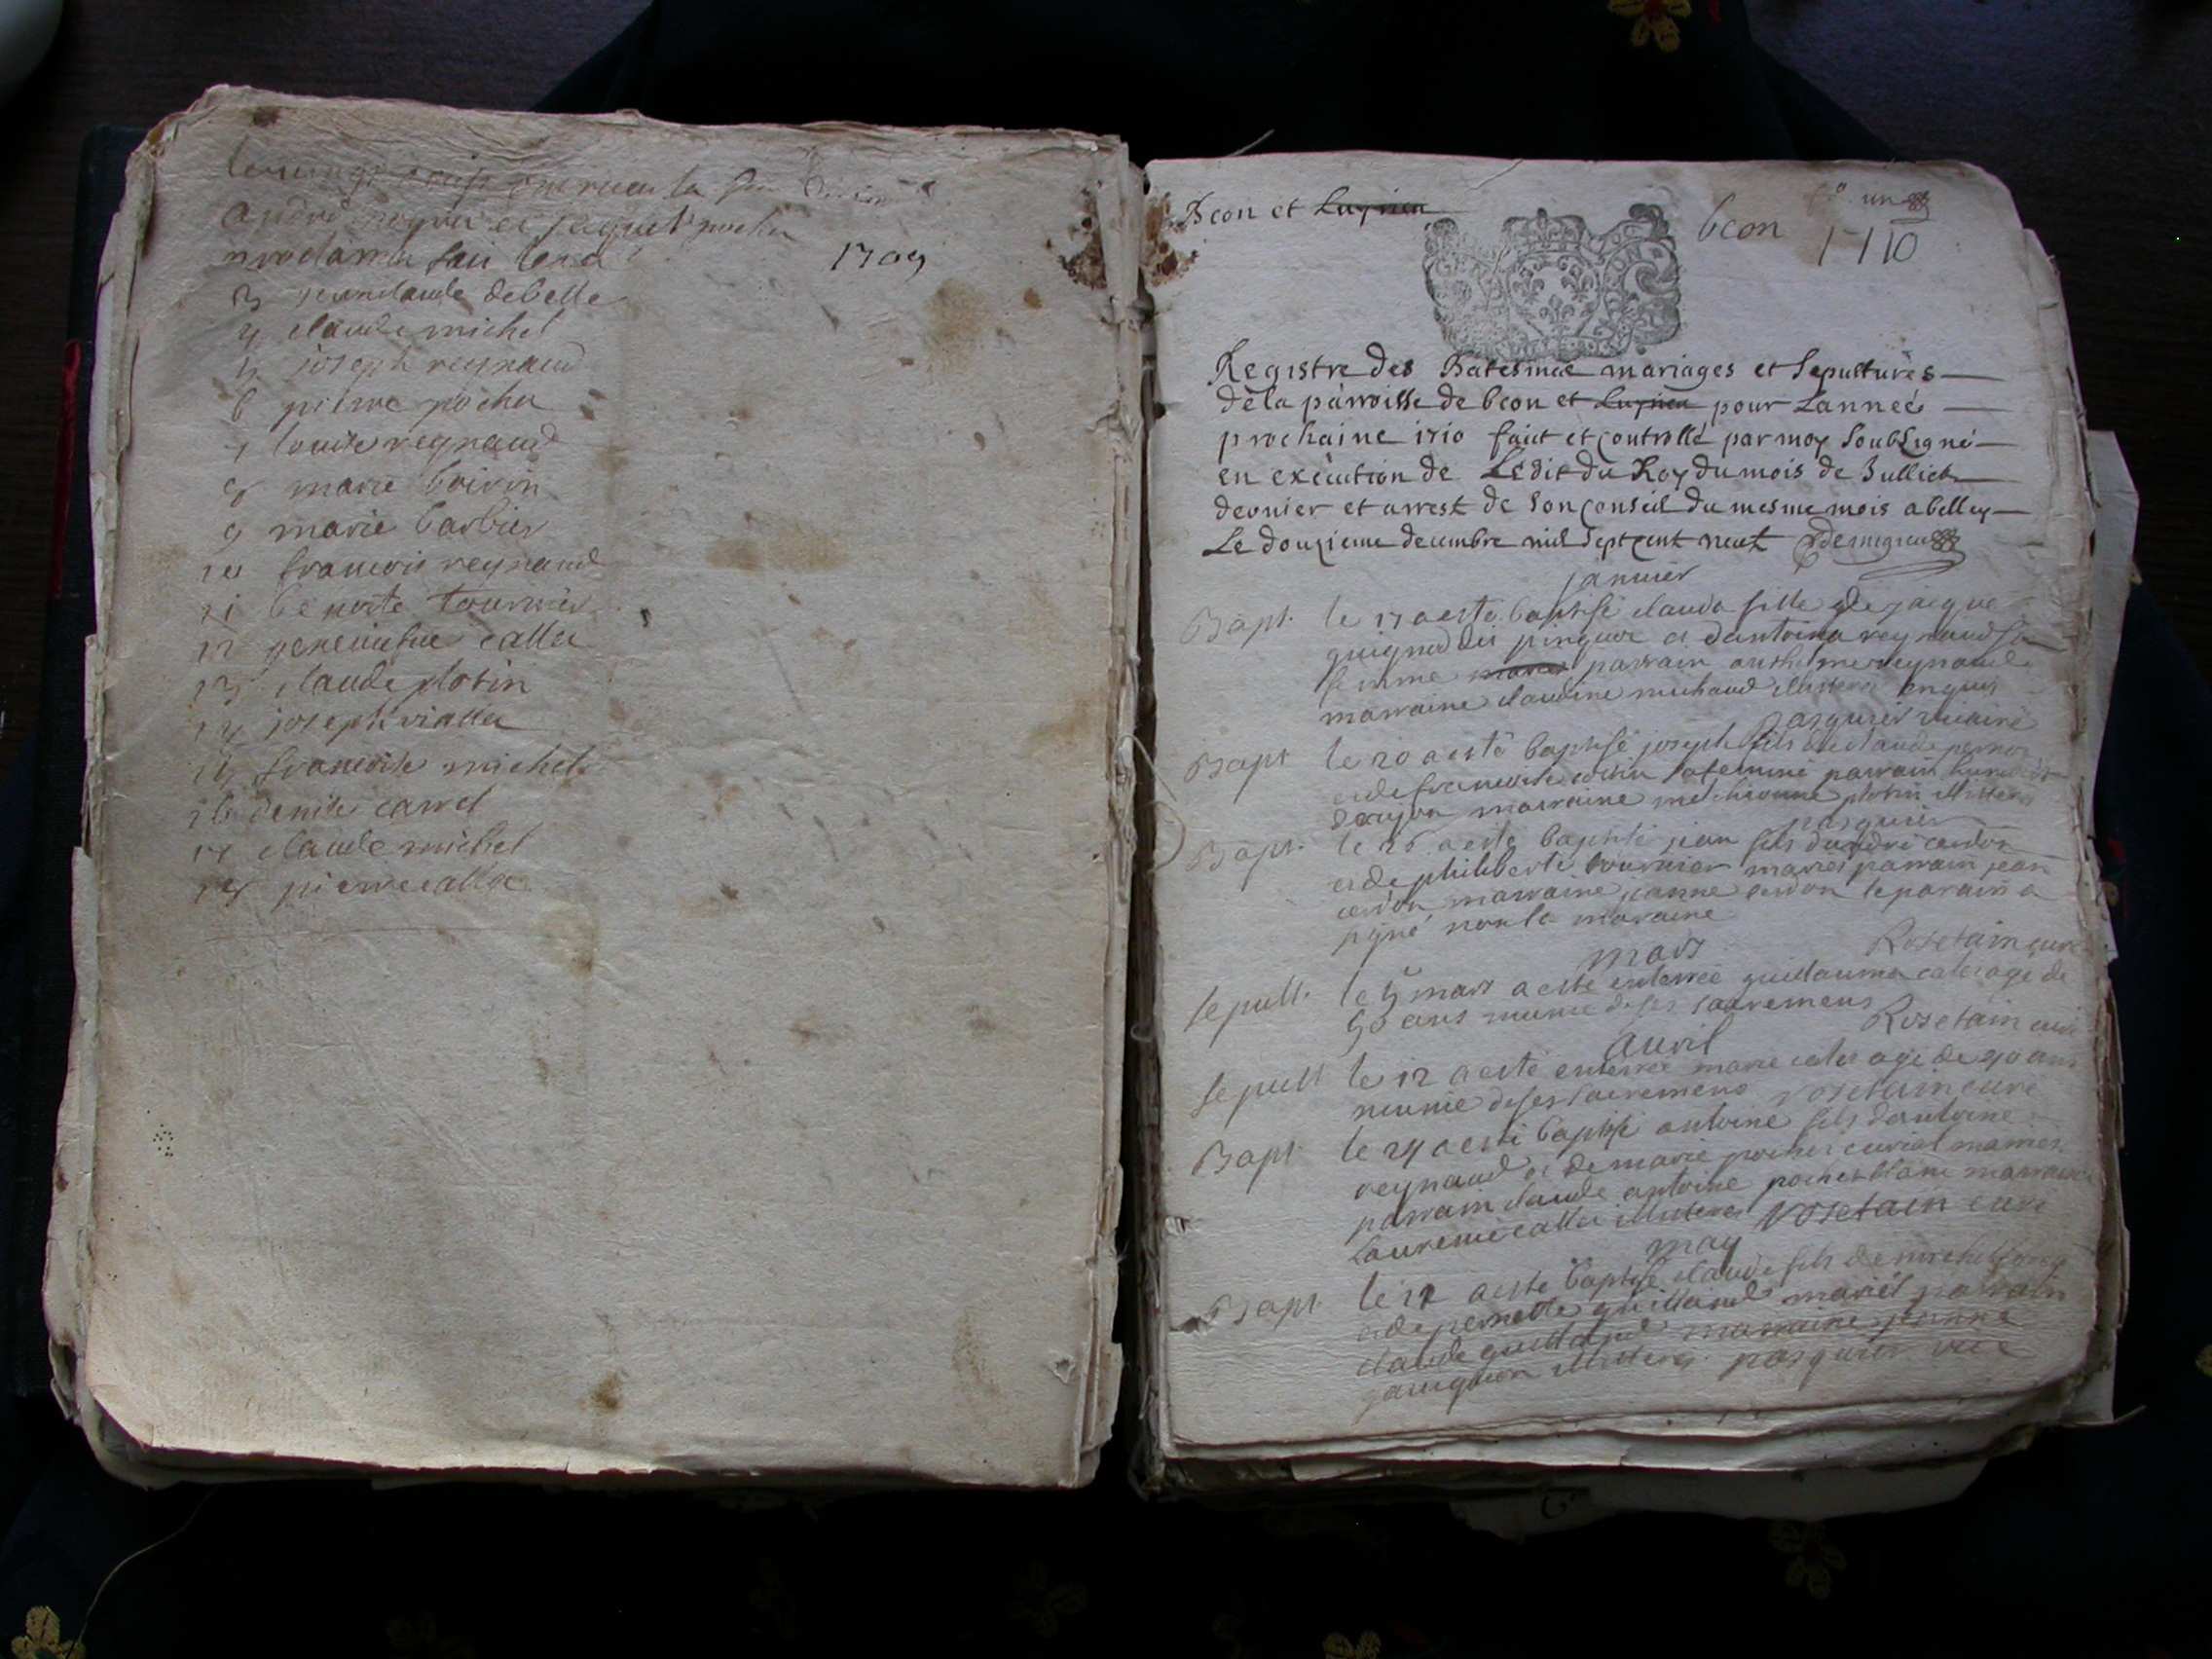 andré et jaques pochet
1709
3 jean claude debelle
4 claude michel
5 joseph reynaud
6 pierre pochet
7 louise reynaud
8 marie boivin
9 marie barbier
10 francois reynaud
11 benoite tournier
12 genevieve callet
13 claude plotin
14 joseph viallet
15 francoise michel
16 denise carrel
17 claude michel
18 pierre callet
Beon et Luyrieu
beon
fo. un
1710
Registre des Batesmes mariages et Sepultures
de la parroisse de beon et Luyrieu pour Lannee
prochaine 1710 fait et controllé par moy Soubsigné
en execution de Ledit du Roy du mois de Juillet
dernier et arrest de son Conseil du mesme mois a belley
Le douzieme decembre mil sept cent neuf
janvier
Bapt. le 17 a esté baptisé clauda fille de jacque
et dantoina reynaud sa
femme parrain anthelme reynaud
marraine claudine michaud illiteres enquis
pasquier vicaire
Bapt le 20 a esté baptisé joseph fils de claude
et de francoise sa femme parrain
marraine plotin illiteres
pasquier
Bapt. le 26 a esté baptisé jean fils dandré cerdon
et de philiberte tournier mariés parrain jean
cerdon marraine jeanne cerdon le parain a
signé non la maraine
Rosetain curé
mars
sepult. le 5 mars a esté enterrée guillauma calet age de
50 ans munie de ses sacremens
Rosetain curé
avril
sepult le 12 a esté enterrée marie calet age de 90 ans
munie de ses sacremens rosetain curé
Bapt. le 24 a esté baptisé antoine fils dantoine
reynaud et de marie pochet curial mariés
parrain claude antoine pochet blanc marraine
laurence callet illiteres rosetain curé
may
Bapt. le 12 a esté baptisé claude fils de michel
et de pernette guilland mariés parrain
claude guilland marraine jeanne
illiteres pasquier vic